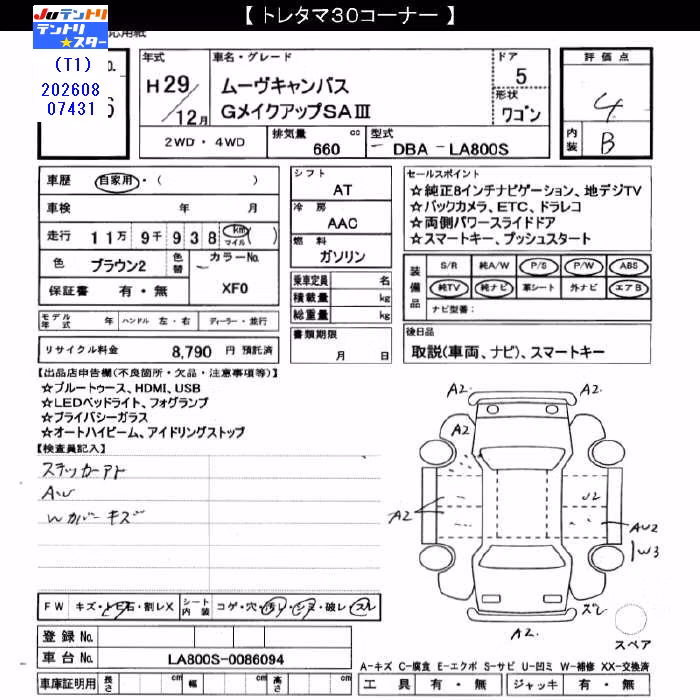 【 トレタマ30コーナー 】
Juテントリ
テントリ
★スター
(T1)
202608
07431
年式
H29/12月
車名・グレード
ムーヴキャンバス
GメイクアップSAⅢ
ドア
5
形状
ワゴン
評価点
4
内装
B
2WD・4WD
排気量 660 cc
型式 DBA-LA800S
車歴 自家用・( )
車検 年 月
走行 11万 9千 938 km マイル ( )
色 ブラウン2 色替 カラーNo. XF0
保証書 有・無
シフト
AT
冷房
AAC
燃料
ガソリン
乗車定員 名
積載量 kg
総重量 kg
書類期限
月 日
セールスポイント
☆純正8インチナビゲーション、地デジTV
☆バックカメラ、ETC、ドラレコ
☆両側パワースライドドア
☆スマートキー、プッシュスタート
装備品
S/R 純A/W P/S P/W ABS
純TV 純ナビ 革シート 外ナビ エアB
ナビ型番:
モデル年式 年 ハンドル 左・右 ディーラー・並行
リサイクル料金 8,790 円 預託済
後日品
取説(車両、ナビ)、スマートキー
【出品店申告欄(不良箇所・欠品・注意事項等)】
☆ブルートゥース、HDMI、USB
☆LEDヘッドライト、フォグランプ
☆プライバシーガラス
☆オートハイビーム、アイドリングストップ
【検査員記入】
ステッカーアト
AW
Wカバーキズ
A2 A2
A2
A2
U2
AU2
W3
A2
ズレ
スペア
FW キズ・トビ石・割レX
シート内装 コゲ・穴・汚レ・シミ・破レ・スレ
登録 No.
車台 No. LA800S-0086094
車庫証明用 長さ cm 幅 cm 高さ cm
A-キズ C-腐食 E-エクボ S-サビ U-凹ミ W-補修 XX-交換済
工具 有・無 ジャッキ 有・無